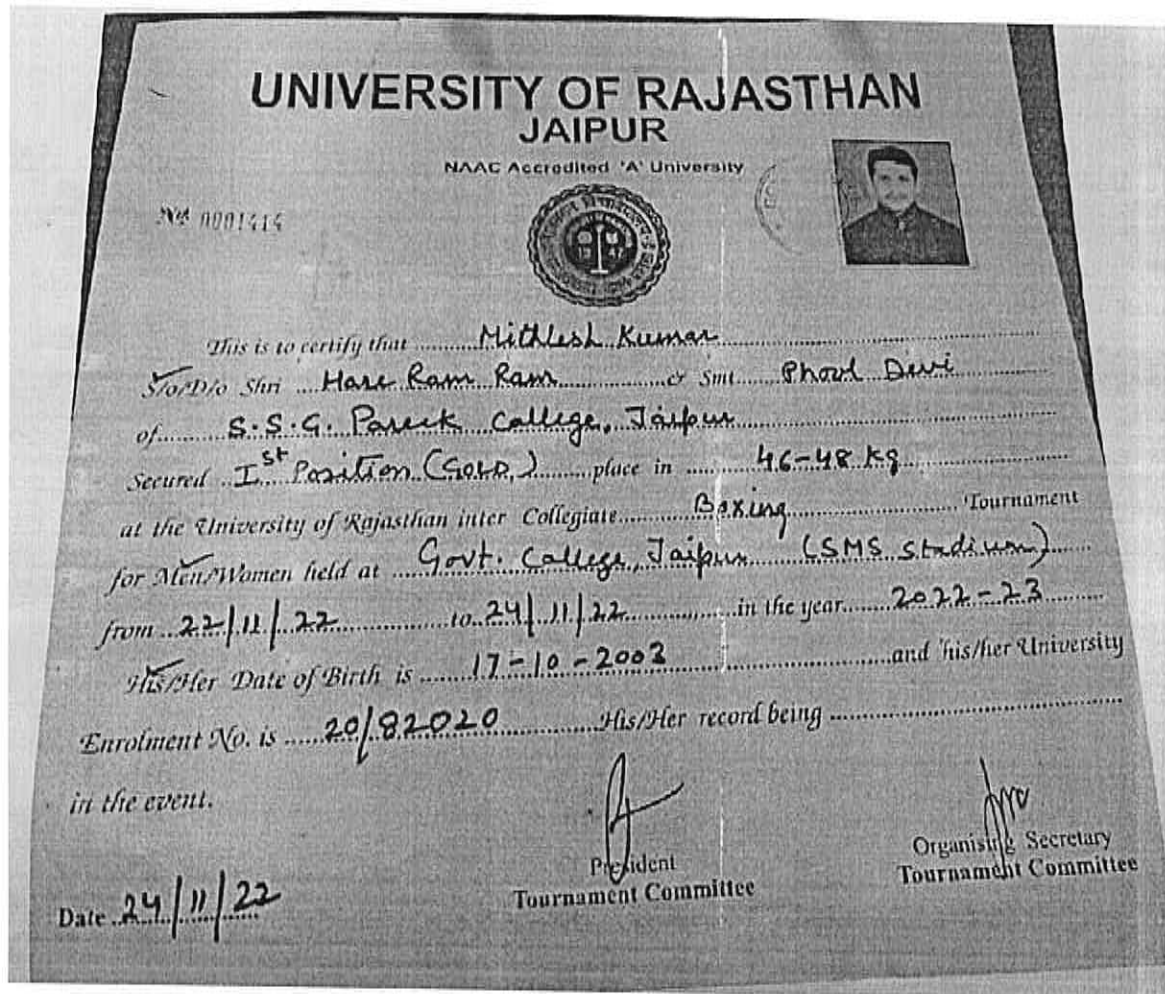 UNIVERSITY OF RAJASTHAN
JAIPUR
NAAC Accredited 'A' University
No 0001414
This is to certify that Mithlesh Kumar
S/o/D/o Shri Hare Ram Ram & Smt. Phool Devi
of S.S.G. Pareek College, Jaipur
Secured Ist Position (Gold) place in 46-48 kg
at the University of Rajasthan inter Collegiate Boxing Tournament
for Men/Women held at Govt. College, Jaipur (SMS Stadium)
from 22/11/22 to 24/11/22 in the year 2022-23
His/Her Date of Birth is 17-10-2003 and his/her University
Enrolment No. is 20/82020 His/Her record being
in the event.
President
Tournament Committee
Organising Secretary
Tournament Committee
Date 24/11/22